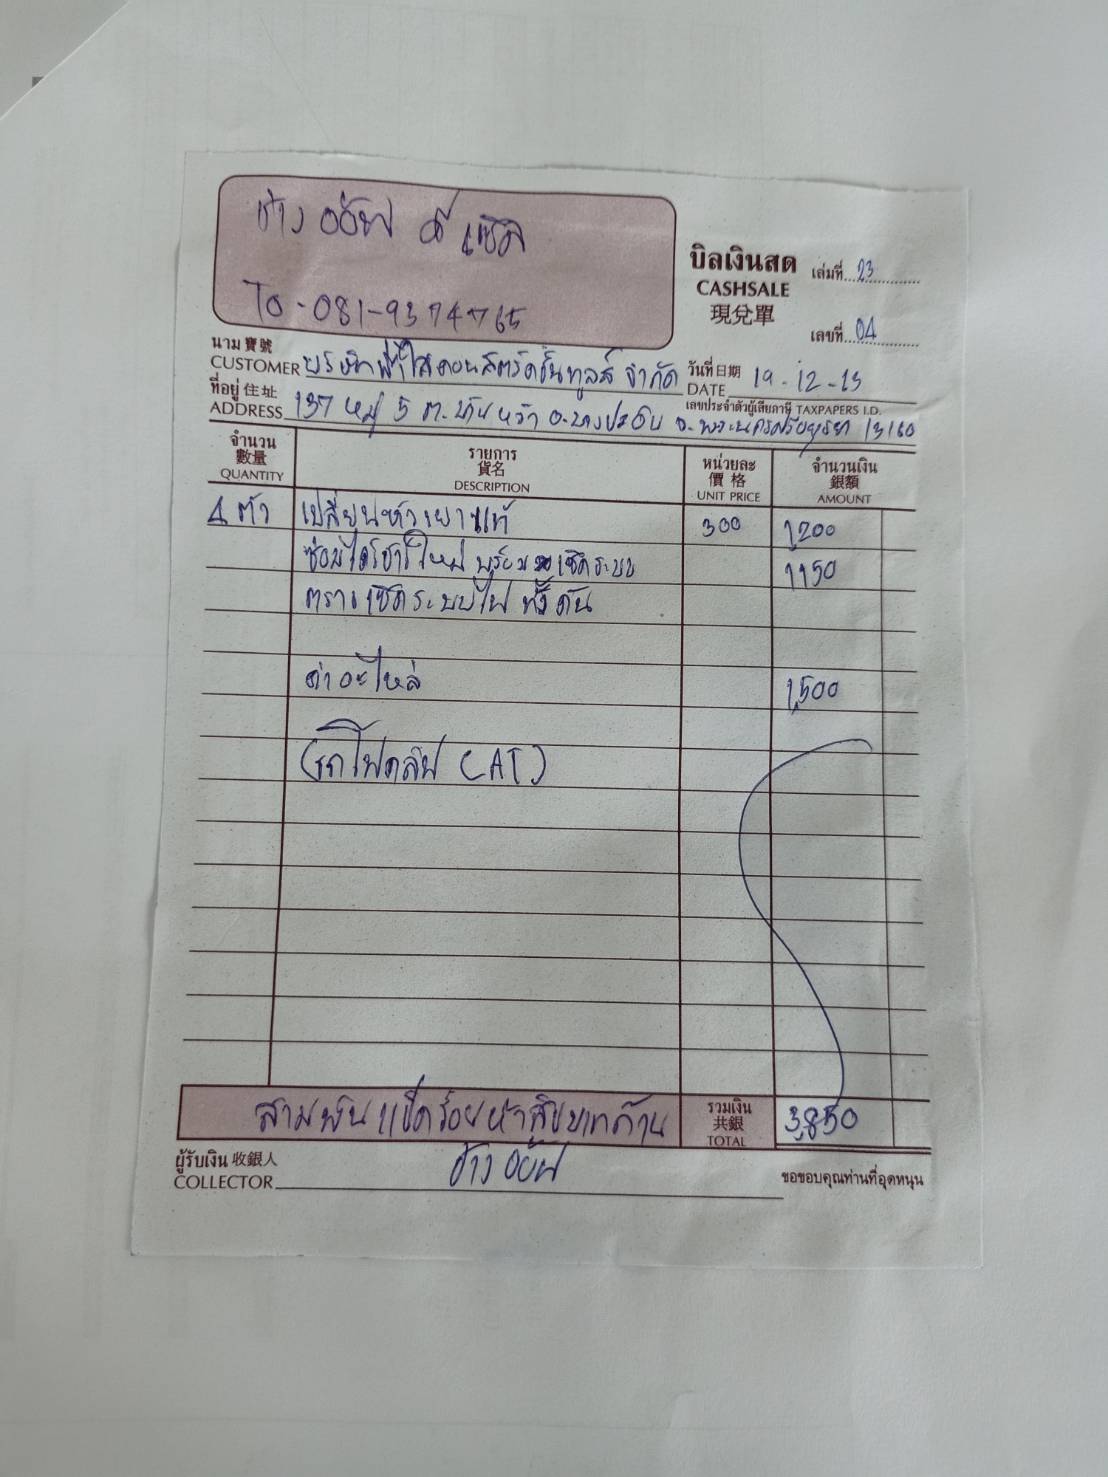 ช่าง ออ๊ฟ ดีเซล
To-081-9374765
บิลเงินสด
CASHSALE
現兌單
เล่มที่ 23
เลขที่ 04
นาม 寶號
CUSTOMER บริษัทฟ้าใสคอนสตรัคชั่นทูลส์ จำกัด
วันที่ 日期
DATE 19-12-13
ที่อยู่ 住址
ADDRESS 137 หมู่ 5 ต.บ้านหว้า อ.บางปะอิน จ.พระนครศรีอยุธยา 13160
เลขประจำตัวผู้เสียภาษี TAXPAPERS I.D.
จำนวน 數量 QUANTITY
รายการ 貨名 DESCRIPTION
หน่วยละ 價格 UNIT PRICE
จำนวนเงิน 銀額 AMOUNT
4 ตัว เปลี่ยนหัวเผาแท้ 300 1,200
ซ่อมไดร์ชาร์ใหม่ พร้อม เช็คระบบ 1150
ตราเช็คระบบไฟ ทั้งคัน
ค่าอะไหล่ 1,500
(รถโฟคลิฟ (AT)
สามพันแปดร้อยห้าสิบบาทถ้วน
รวมเงิน 共銀 TOTAL 3,850
ผู้รับเงิน 收銀人
COLLECTOR ช่าง ออ๊ฟ
ขอขอบคุณท่านที่อุดหนุน